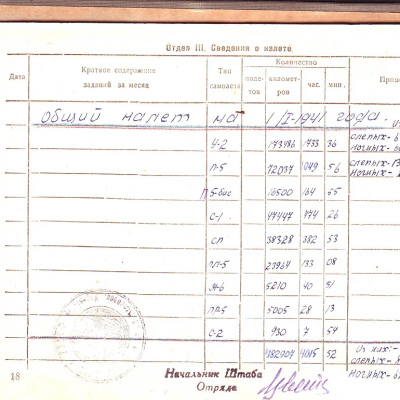 Отдел III. Сведения о налете
Дата Краткое содержание заданий за месяц Тип самолета Количество полетов километров час. мин. Прим
Общий налет на 1/I-1941 года. из
У-2 173786 1733 36 слепых-6
ночных-
П-5 72037 649 56 слепых-13
ночных-
П5-бис 16500 164 55
С-1 47447 474 26
СП 38328 382 53
ПЛ-5 23964 133 08
М-6 5210 40 51
ПР5 5005 28 13
С-2 930 7 54
382907 4015 52 Из них:-
слепых-
ночных-
18 Начальник Штаба
Отряда